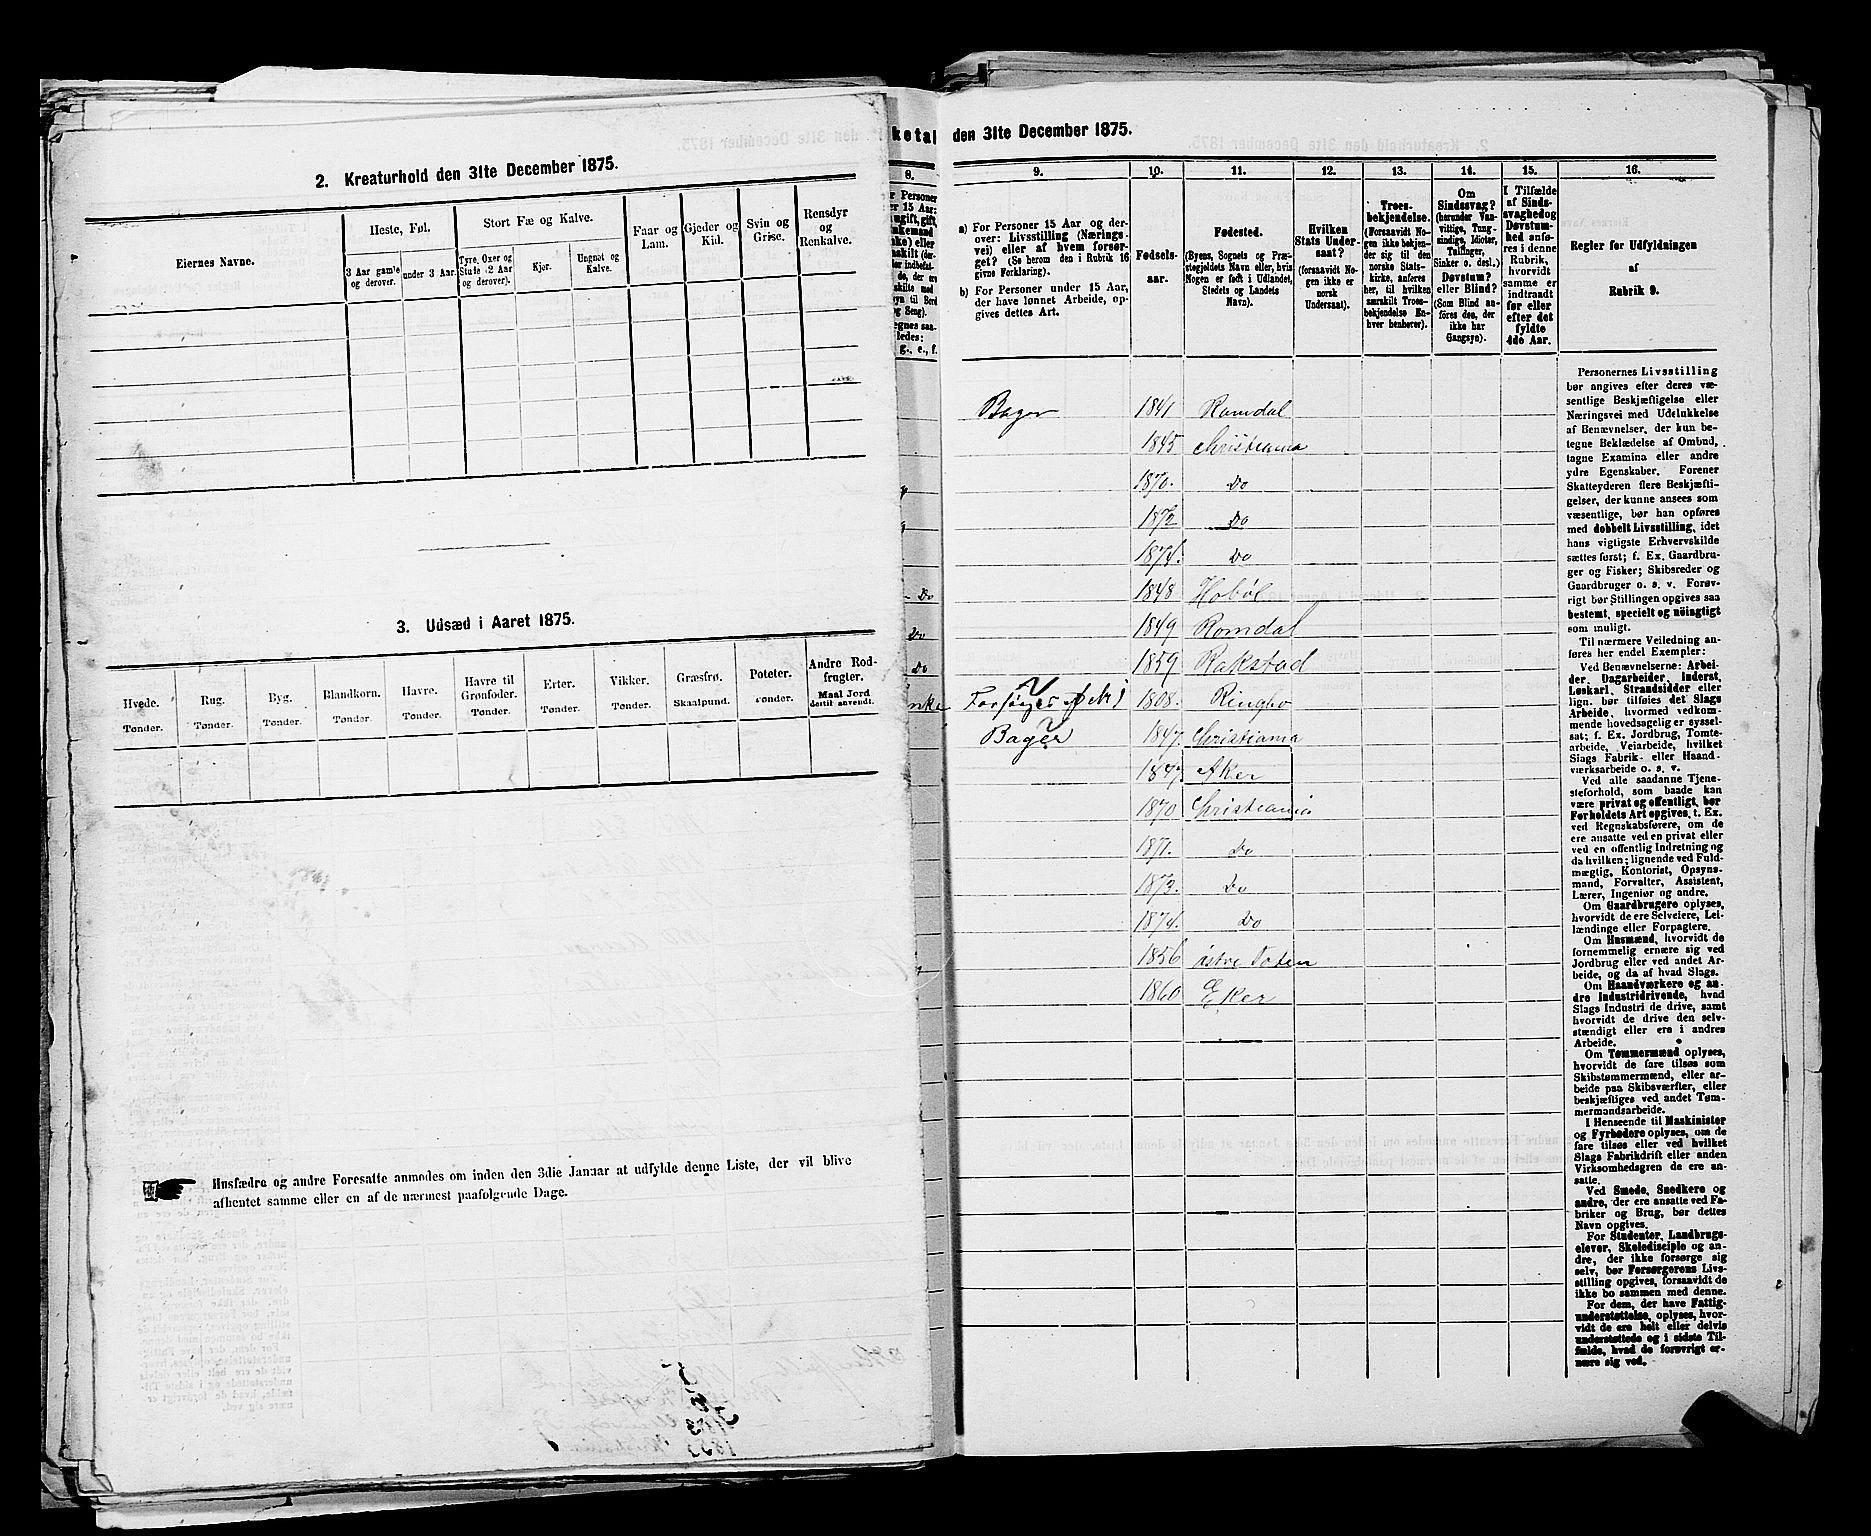 2. Kreaturhold den 31te December 1875.
Eiernes Navne.
Heste, Føl.
3 Aar gamle og derover.
under 3 Aar.
Stort Fæ og Kalve.
Tyre, Oxer og Stude (2 Aar og derover).
Kjør.
Ungnøt og Kalve.
Faar og Lam.
Gjeder og Kid.
Svin og Grise.
Rensdyr og Renkalve.
3. Udsæd i Aaret 1875.
Hvede. Tønder.
Rug. Tønder.
Byg. Tønder.
Blandkorn. Tønder.
Havre. Tønder.
Havre til Grønfoder. Tønder.
Erter. Tønder.
Vikker. Tønder.
Græsfrø. Skaalpund.
Poteter. Tønder.
Andre Rodfrugter. Maal Jord dertil anvendt.
Husfædre og andre Foresatte anmodes om inden den 3die Januar at udfylde denne Liste, der vil blive
afhentet samme eller en af de nærmest paafølgende Dage.
ketal den 31te December 1875.
8.
9.
10.
11.
12.
13.
14.
15.
16.
a) For Personer 15 Aar og derover: Livsstilling (Næringsvei) eller af hvem forsørget? (Se herom den i Rubrik 16 givne Forklaring).
b) For Personer under 15 Aar, der have lønnet Arbeide, opgives dettes Art.
Fødselsaar.
Fødested.
(Byens, Sognets og Præstegjeldets Navn eller, hvis Nogen er født i Udlandet, Stedets og Landets Navn).
Hvilken Stats Undersaat?
(forsaavidt Nogen ikke er norsk Undersaat).
Troesbekjendelse.
(Forsaavidt Nogen ikke bekjender sig til den norske Statskirke, anføres her, til hvilken særskilt Troesbekjendelse Enhver henhører).
Om Sindssvag? (herunder Vanvittige, Tungsindige, Idioter, Tullinger, Sinker o. desl.) Døvstum? eller Blind? (Som Blind anføres den, der ikke har Gangsyn).
I Tilfælde af Sindssvaghed og Døvstumhed anføres i denne Rubrik, hvorvidt samme er indtraadt før eller efter det fyldte 4de Aar.
Regler for Udfyldningen af Rubrik 9.
Bager 1841 Romdal
1845 Christiania
1870. Do
1872 Do
1874. Do
Do 1848 Hobøl
Do 1849 Romdal
Do 1859 Rakstad
1808. Ringbo
Bager 1847. Christiania
1847 Aker
1870 Christiania
1871. Do
1873. Do
1874. Do
1856 østre Toten
1860 Eker
Personernes Livsstilling
bør angives efter deres væsentlige
Beskjæftigelse eller
Næringsvei med Udelukkelse
af Benævnelser, der kun betegne
Beklædelse af Ombud,
tagne Examina eller andre
ydre Egenskaber. Forener
Skatteyderen flere Beskjæftigelser,
der kunne ansees som
væsentlige, bør han opføres
med dobbelt Livsstilling, idet
hans vigtigste Erhvervskilde
sættes først; f. Ex. Gaardbruger
og Fisker; Skibsreder og
Gaardbruger o. s. v. Forøvrigt
bør Stillingen opgives saa
bestemt, specielt og nøiagtigt
som muligt.
Til nærmere Veiledning anføres
her endel Exempler:
Ved Benævnelserne: Arbeider,
Dagarbeider, Inderst,
Løskarl, Strandsidder eller
lign. bør tilføies det Slags
Arbeide, hvormed vedkommende
hovedsagelig er sysselsat;
f. Ex. Jordbrug, Tomtearbeide,
Veiarbeide, hvilket
Slags Fabrik- eller Haandværksarbeide
o. s. v.
Ved alle saadanne Tjenesteforhold,
som baade kan
være privat og offentligt, bør
Forholdets Art opgives, t. Ex.
ved Regnskabsførere, om de
ere ansatte ved en privat eller
ved en offentlig Indretning og
da hvilken; lignende ved Fuldmægtig,
Kontorist, Opsynsmand,
Forvalter, Assistent,
Lærer, Ingeniør og andre.
Om Gaardbrugere oplyses,
hvorvidt de ere Selveiere, Leilændinge
eller Forpagtere.
Om Husmænd, hvorvidt de
fornemmelig ernære sig ved
Jordbrug eller ved andet Arbeide,
og da af hvad Slags.
Om Haandværkere og andre
Industridrivende, hvad
Slags Industri de drive, samt
hvorvidt de drive den selvstændigt
eller ere i andres
Arbeide.
Om Tømmermænd oplyses,
hvorvidt de fare tilsøs som
Skibstømmermænd, eller arbeide
paa Skibsværfter, eller
beskjæftiges ved andet Tømmermandsarbeide.
I Henseende til Maskinister
og Fyrbødere oplyses, om de
fare tilsøs eller ved hvilket
Slags Fabrikdrift eller anden
Virksomhedsgren de ere ansatte.
Ved Smede, Snedkere og
andre, der ere ansatte ved Fabriker
og Brug, bør dettes
Navn opgives.
For Studenter, Landbrugselever,
Skoledisciple og andre,
der ikke forsørge sig
selv, bør Forsørgerens Livsstilling
opgives, forsaavidt de
ikke bo sammen med denne.
For dem, der have Fattigunderstøttelse,
oplyses, hvorvidt
de ere helt eller delvis
understøttede og i sidste Tilfælde,
hvad de forøvrigt ernære
sig ved.